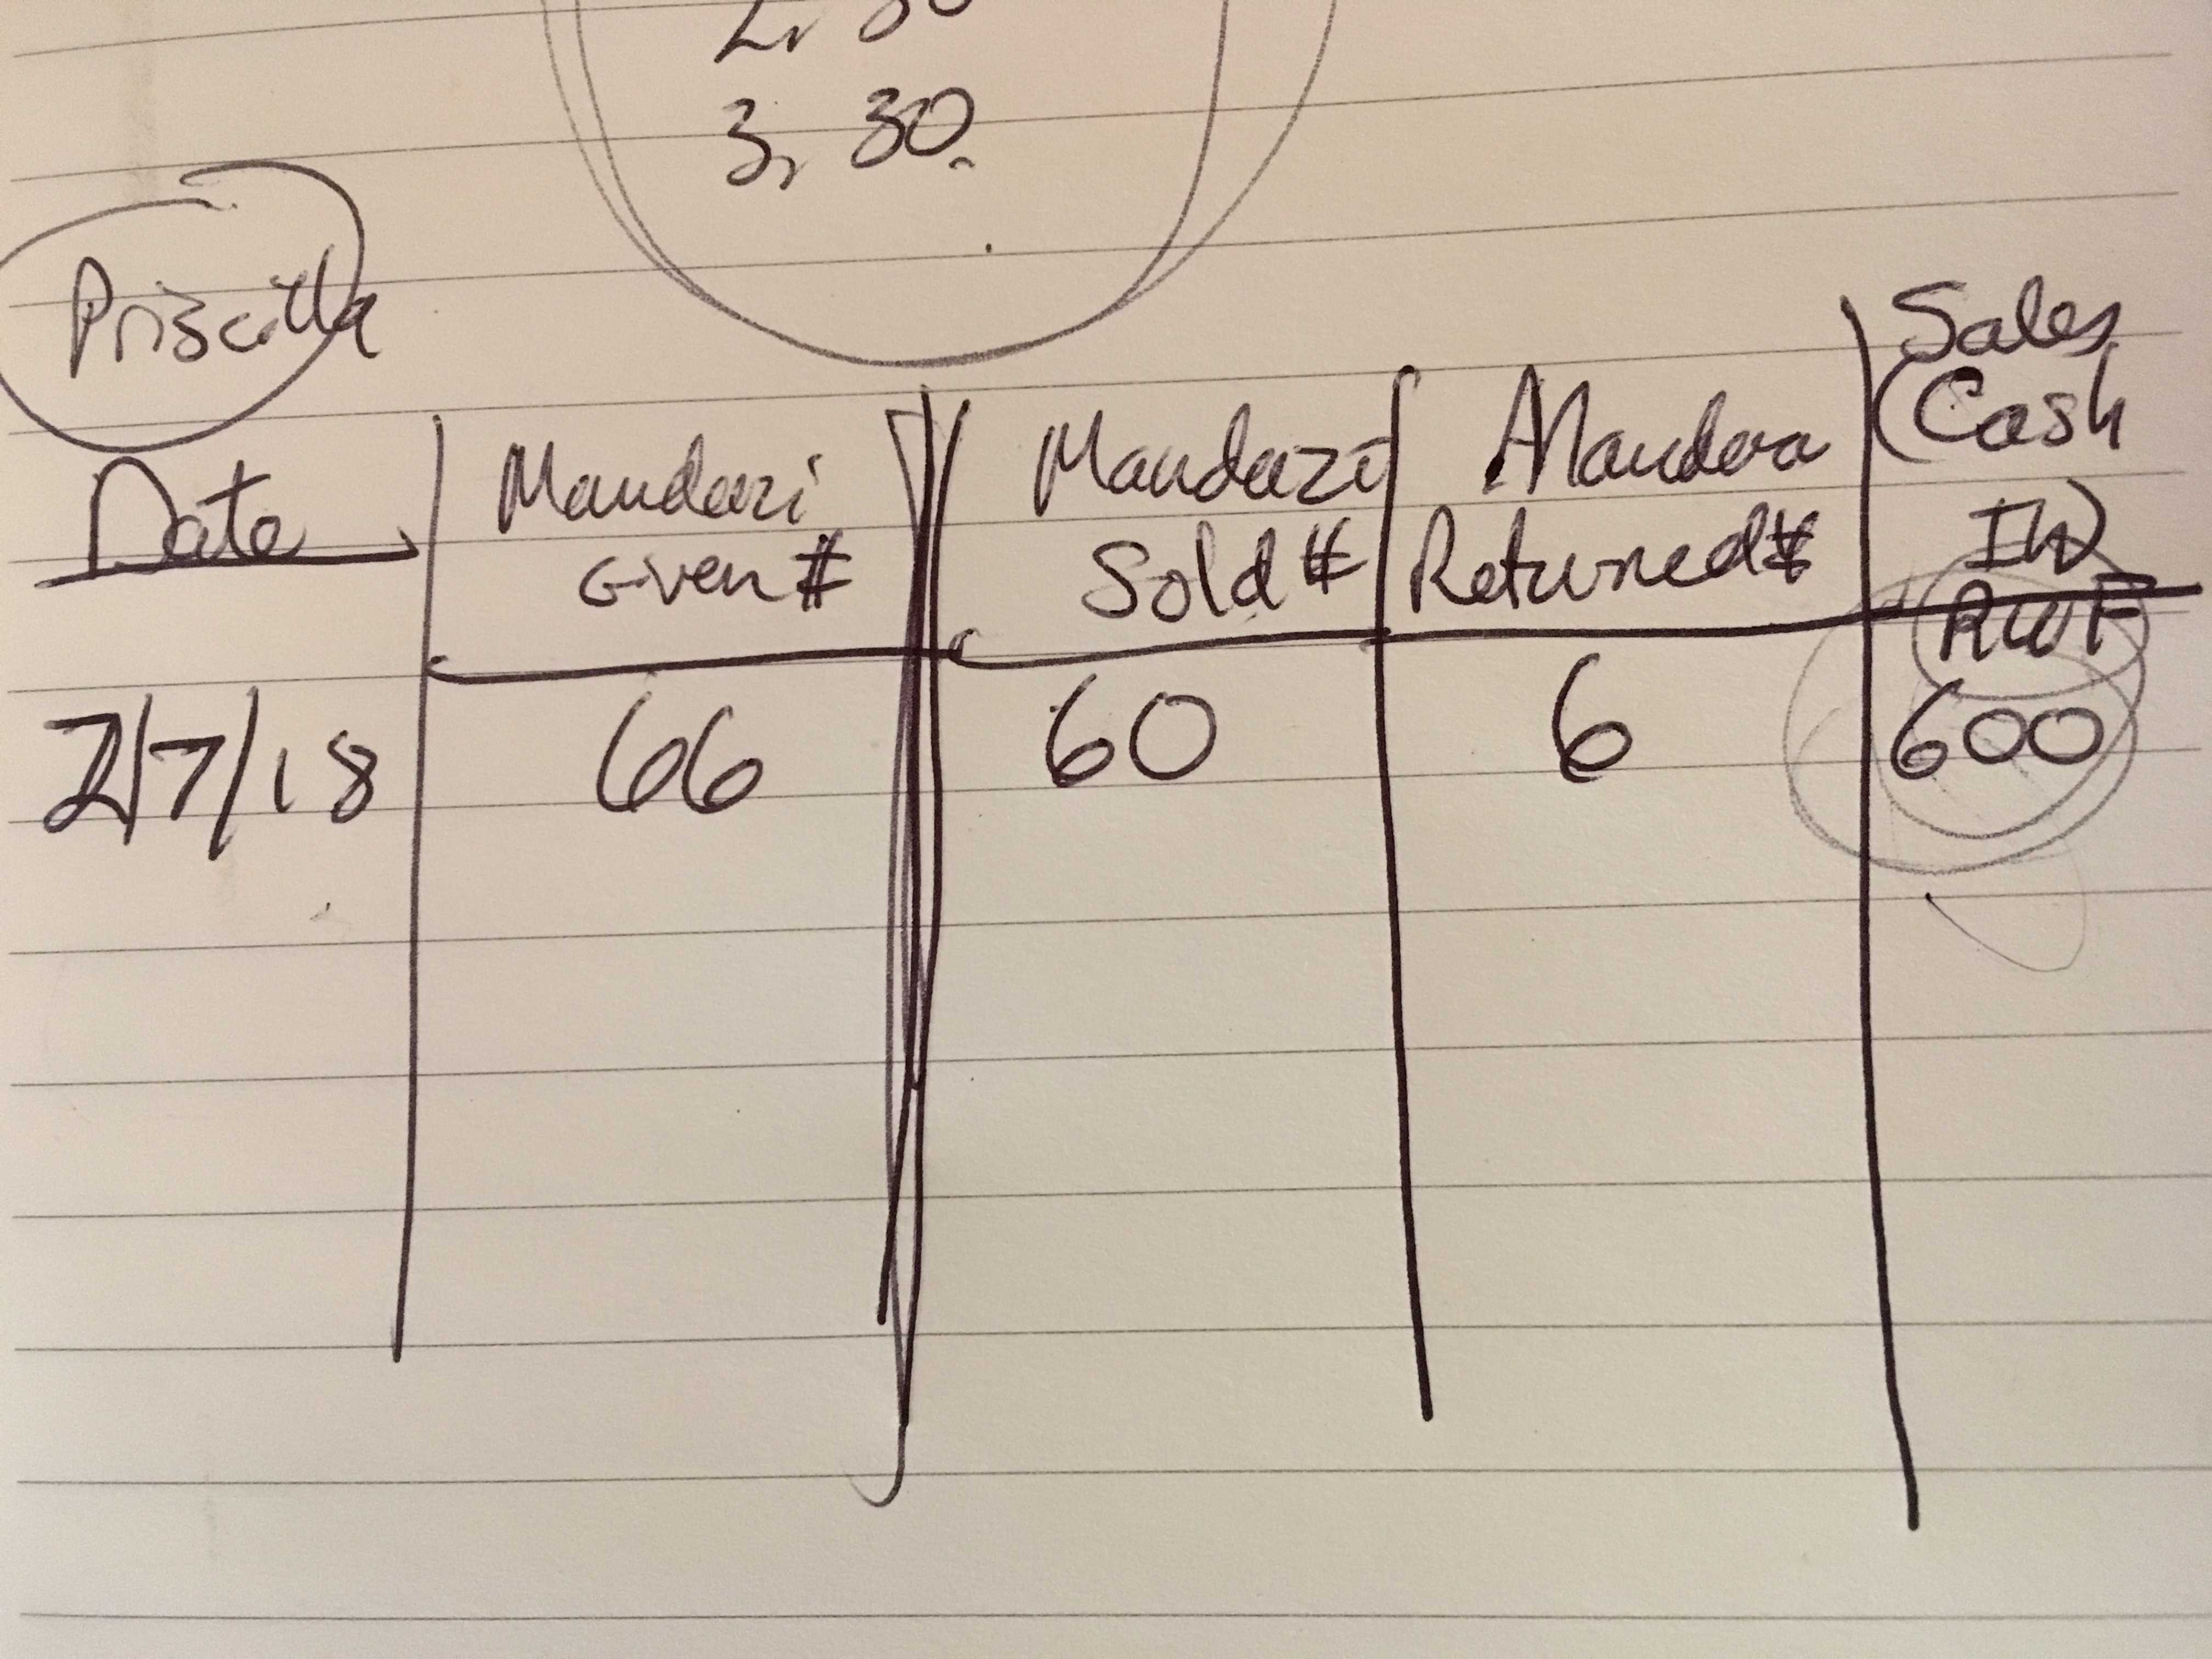 3, 30.
Priscilla
Date
Mandazi
Given #
Mandazi
Sold #
Returned #
Sales
(Cash
IN)
RWF
2/7/18 66 60 6 600